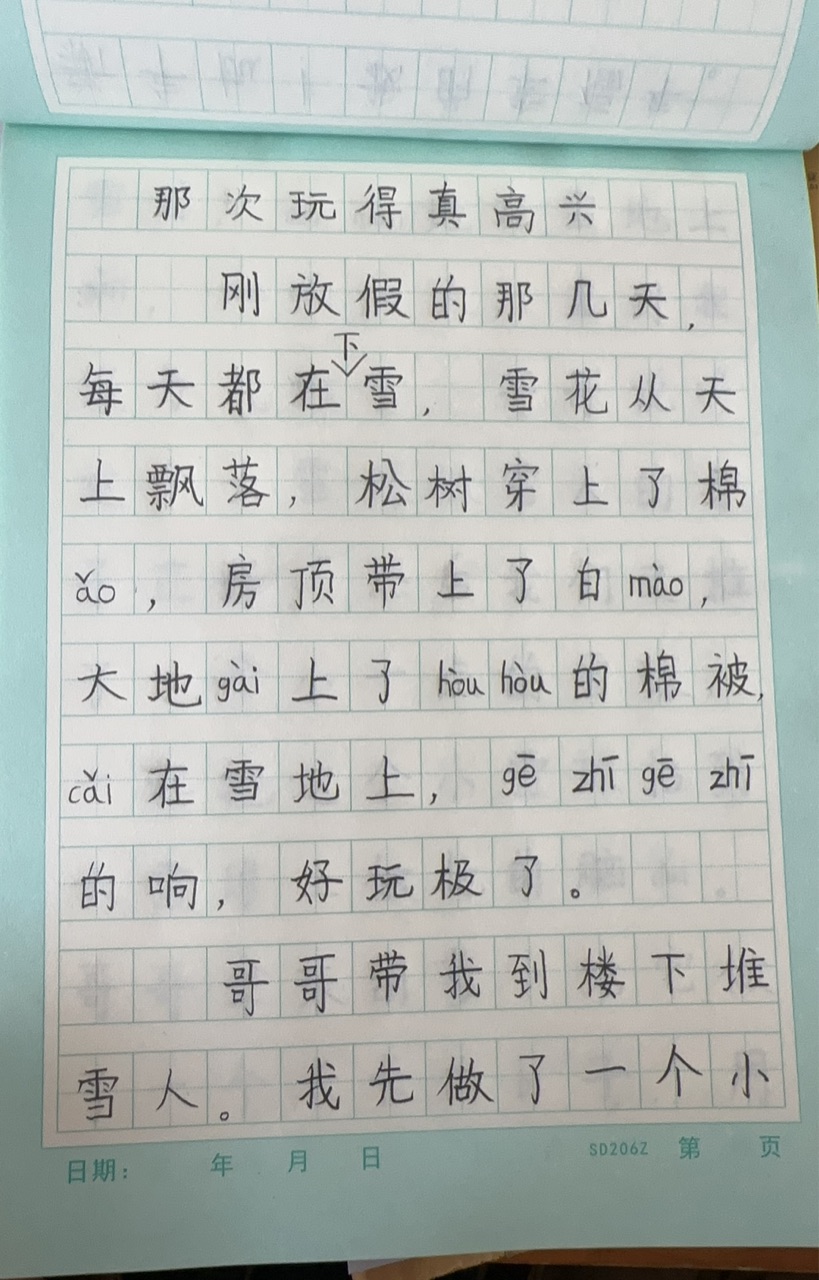 那次玩得真高兴
刚放假的那几天,
每天都在下雪,雪花从天
上飘落,松树穿上了棉
ǎo,房顶带上了白mào,
大地gài上了hòu hòu的棉被,
cǎi在雪地上,gē zhī gē zhī
的响,好玩极了。
哥哥带我到楼下堆
雪人。我先做了一个小
日期: 年 月 日 SD206Z 第 页